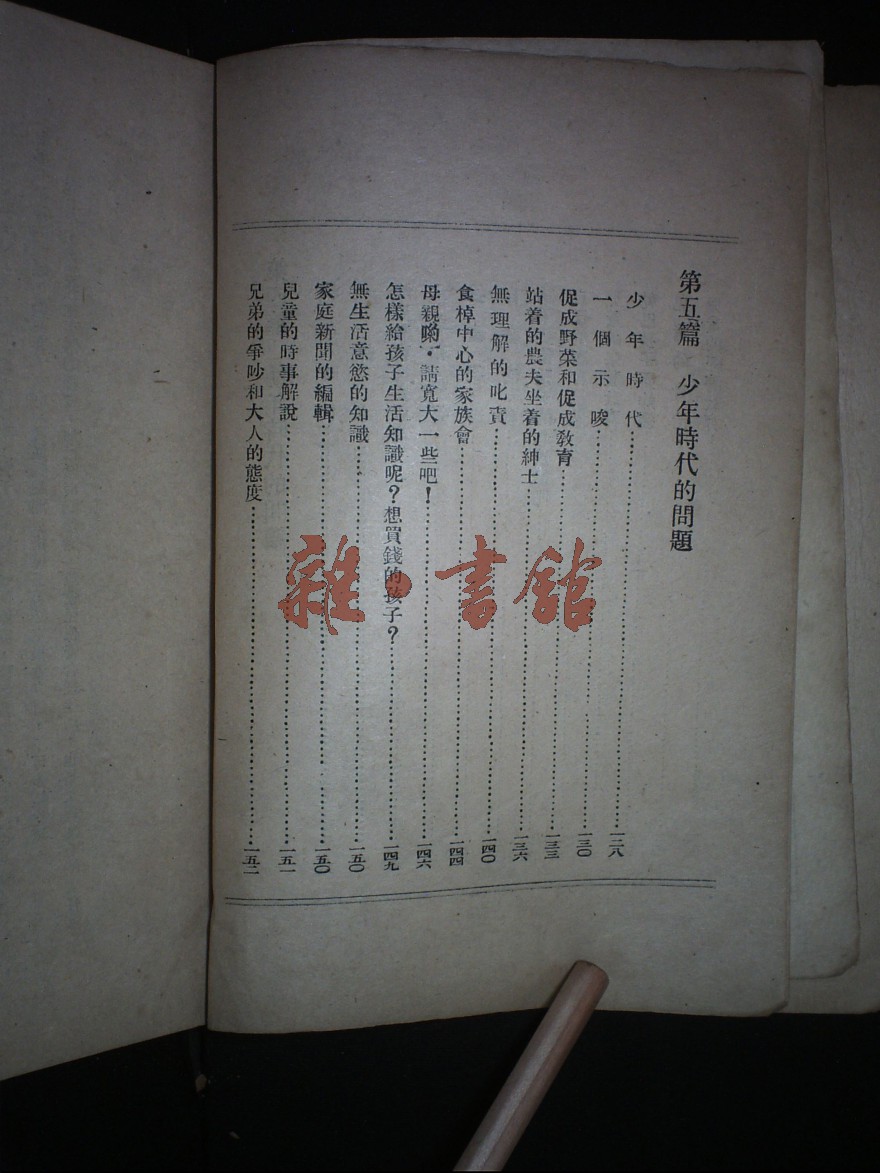 第五篇 少年時代的問題
少年時代……一二八
一個示唆……一三〇
促成野菜和促成教育……一三三
站着的農夫坐着的紳士……一三六
無理解的叱責……一四〇
食棹中心的家族會……一四四
母親喲·請寬大一些吧！……一四六
怎樣給孩子生活知識呢？想買錢的孩子？……一四九
無生活意慾的知識……一五〇
家庭新聞的編輯……一五〇
兒童的時事解說……一五一
兄弟的爭吵和大人的態度……一五二
雜·書館